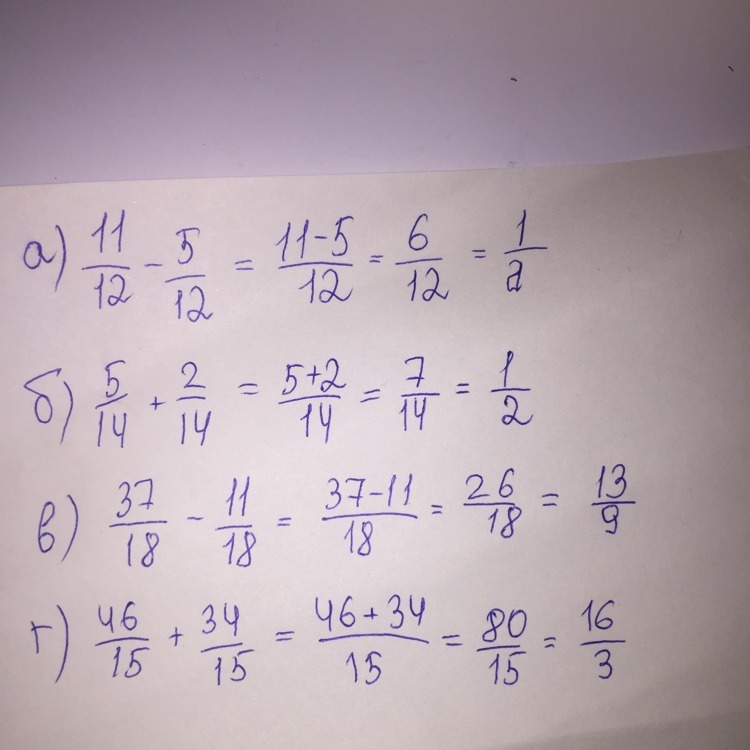 а) 11/12 - 5/12 = 11-5/12 = 6/12 = 1/2
б) 5/14 + 2/14 = 5+2/14 = 7/14 = 1/2
в) 37/18 - 11/18 = 37-11/18 = 26/18 = 13/9
г) 46/15 + 34/15 = 46+34/15 = 80/15 = 16/3